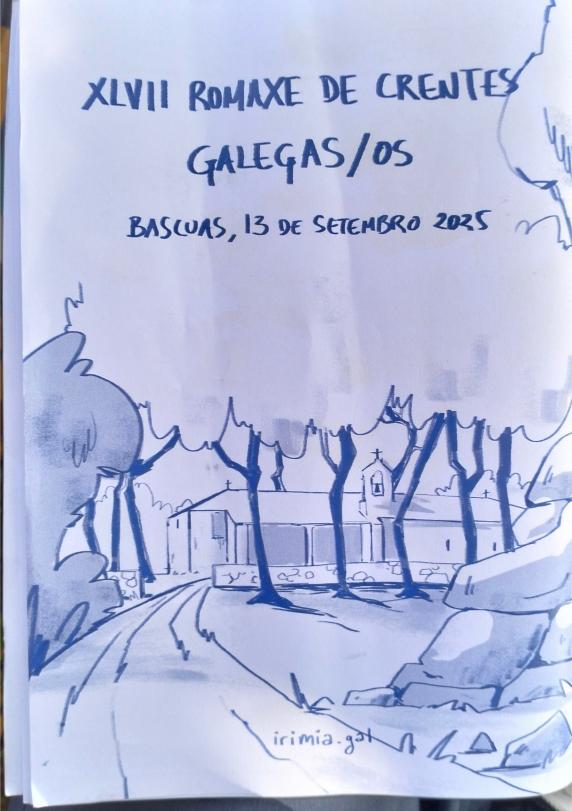 XLVII ROMAXE DE CRENTES
GALEGAS/OS
BASCUAS, 13 DE SETEMBRO 2025
irimia.gal